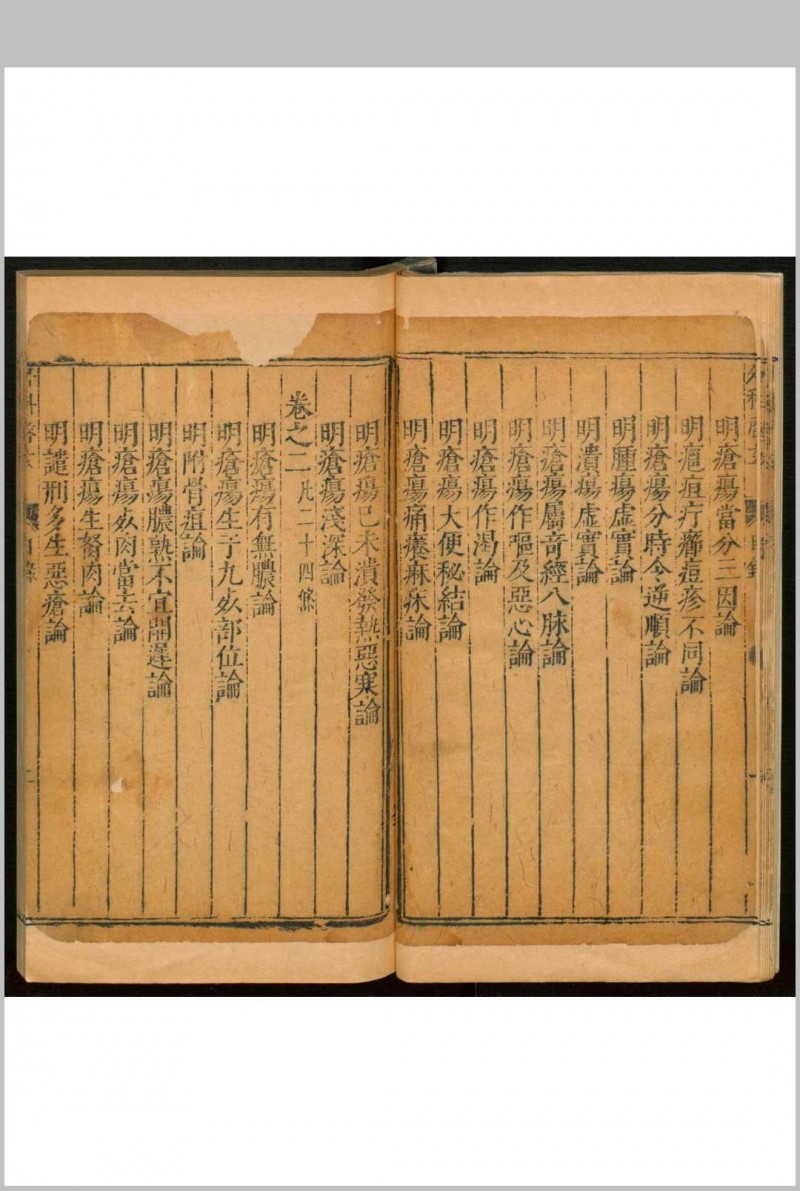 明瘡瘍當分三因論
明瘡疽疔癤痘疹不同論
明瘡瘍分時令逆順論
明腫瘍虛實論
明潰瘍虛實論
明瘡瘍屬奇經八脉論
明瘡瘍作嘔及惡心論
明瘡瘍作渴論
明瘡瘍大便秘結論
明瘡瘍痛癢麻木論
明瘡瘍已未潰發熱惡寒論
明瘡瘍淺深論
卷之二 凡二十四條
明瘡瘍有無膿論
明瘡瘍生于九處部位論
明附骨疽論
明瘡瘍膿熟不宜開遲論
明瘡瘍歹肉當去論
明瘡瘍生胬肉論
明譴刑多生惡瘡論